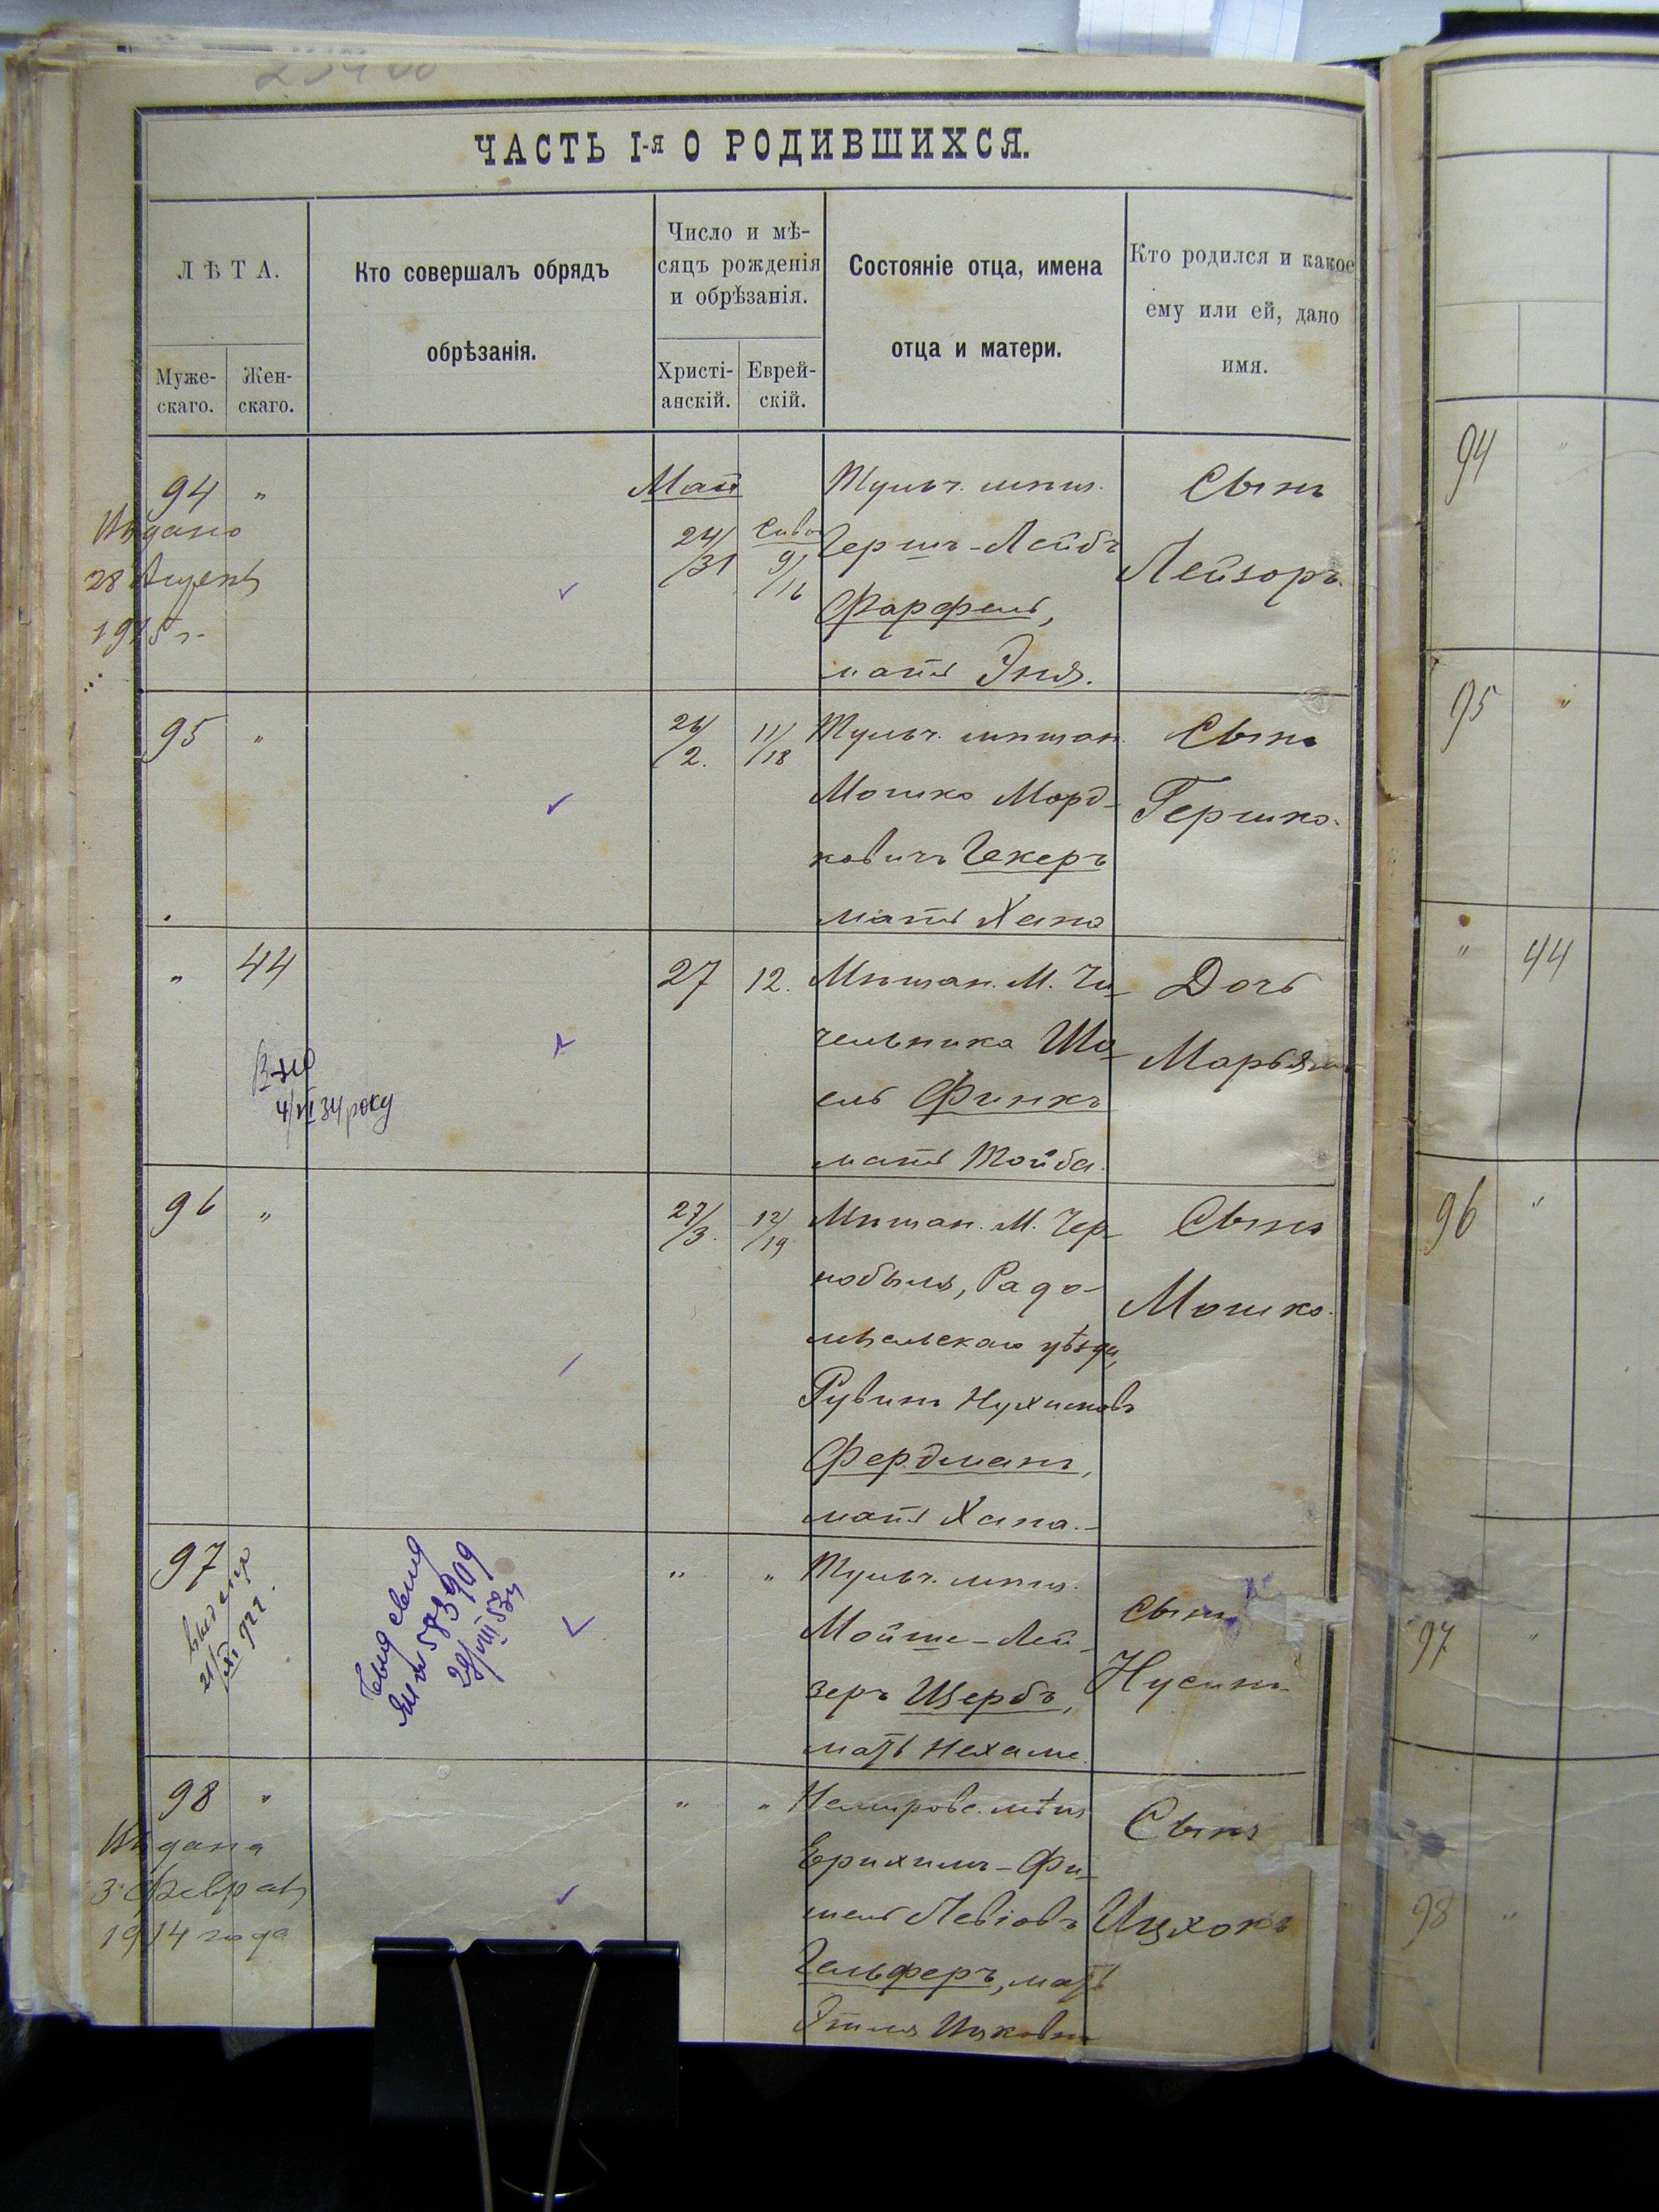 ЧАСТЬ I-я О РОДИВШИХСЯ.
ЛѢТА.
Муже-
скаго.
Жен-
скаго.
Кто совершалъ обрядъ
обрѣзанія.
Число и мѣ-
сяцъ рожденія
и обрѣзанія.
Христі-
анскій.
Еврей-
скій.
Состояніе отца, имена
отца и матери.
Кто родился и какое
ему или ей, дано
имя.
94 "
28
1915 г.
Май
24/31
9/16
Тульч. мѣщ.
Герш-Лейбъ
Фарфель,
мать Эня.
Сынъ
Лейзоръ.
95 "
26/2.
11/18
Тульч. мѣщан.
Мошко Морд-
ковичъ Чекеръ
мать Хана
Сынъ
Гершко.
" 44
4/VI 34 року
27
12.
Мѣщан. М. Чи-
чельника Шо-
ель Финкъ
мать Тойба.
Дочь
Марьям
96 "
27/3.
12/19
Мѣщан. М. Чер-
нобыля, Радо-
мысльскаго уѣзда,
Рувинъ Нухимовъ
Фердманъ,
мать Хана.-
Сынъ
Мошко.
97
21/XI 922.
28/VIII 53
" "
Тульч. мѣщ.
Мойше-Лей-
зеръ Щербъ,
мать Нехаме.
Сынъ
Нусинъ
98 "
Выдана
3 Февраля
1914 года
" "
Немировс. мѣщ.
Фи-
шель Левіовъ
Гельферъ, мать
Этля Ицковна
Сынъ
Ицхокъ
94 "
95 "
" 44
96 "
97 "
98 "